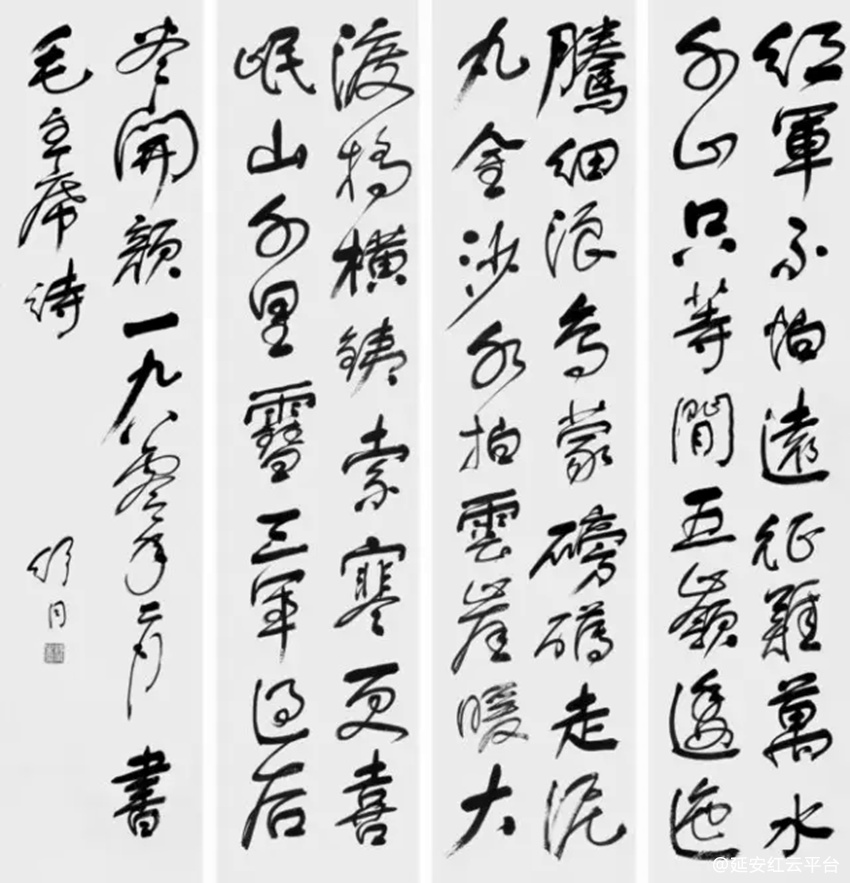 紅軍不怕遠征難萬水
千山只等閒五嶺逶迤
騰細浪烏蒙磅礴走泥
丸金沙水拍雲崖暖大
渡橋橫鐵索寒更喜
岷山千里雪三軍過后
尽開顏一九八零年二月書
毛主席詩
舒同
@延安红云平台